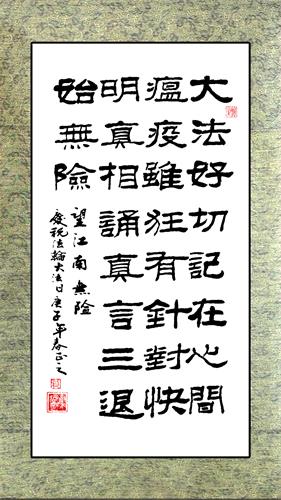 大法好切記在心間
瘟疫雖狂有針對快
明真相誦真言三退
始無險
望江南 無險
慶祝法輪大法日庚子年春正之